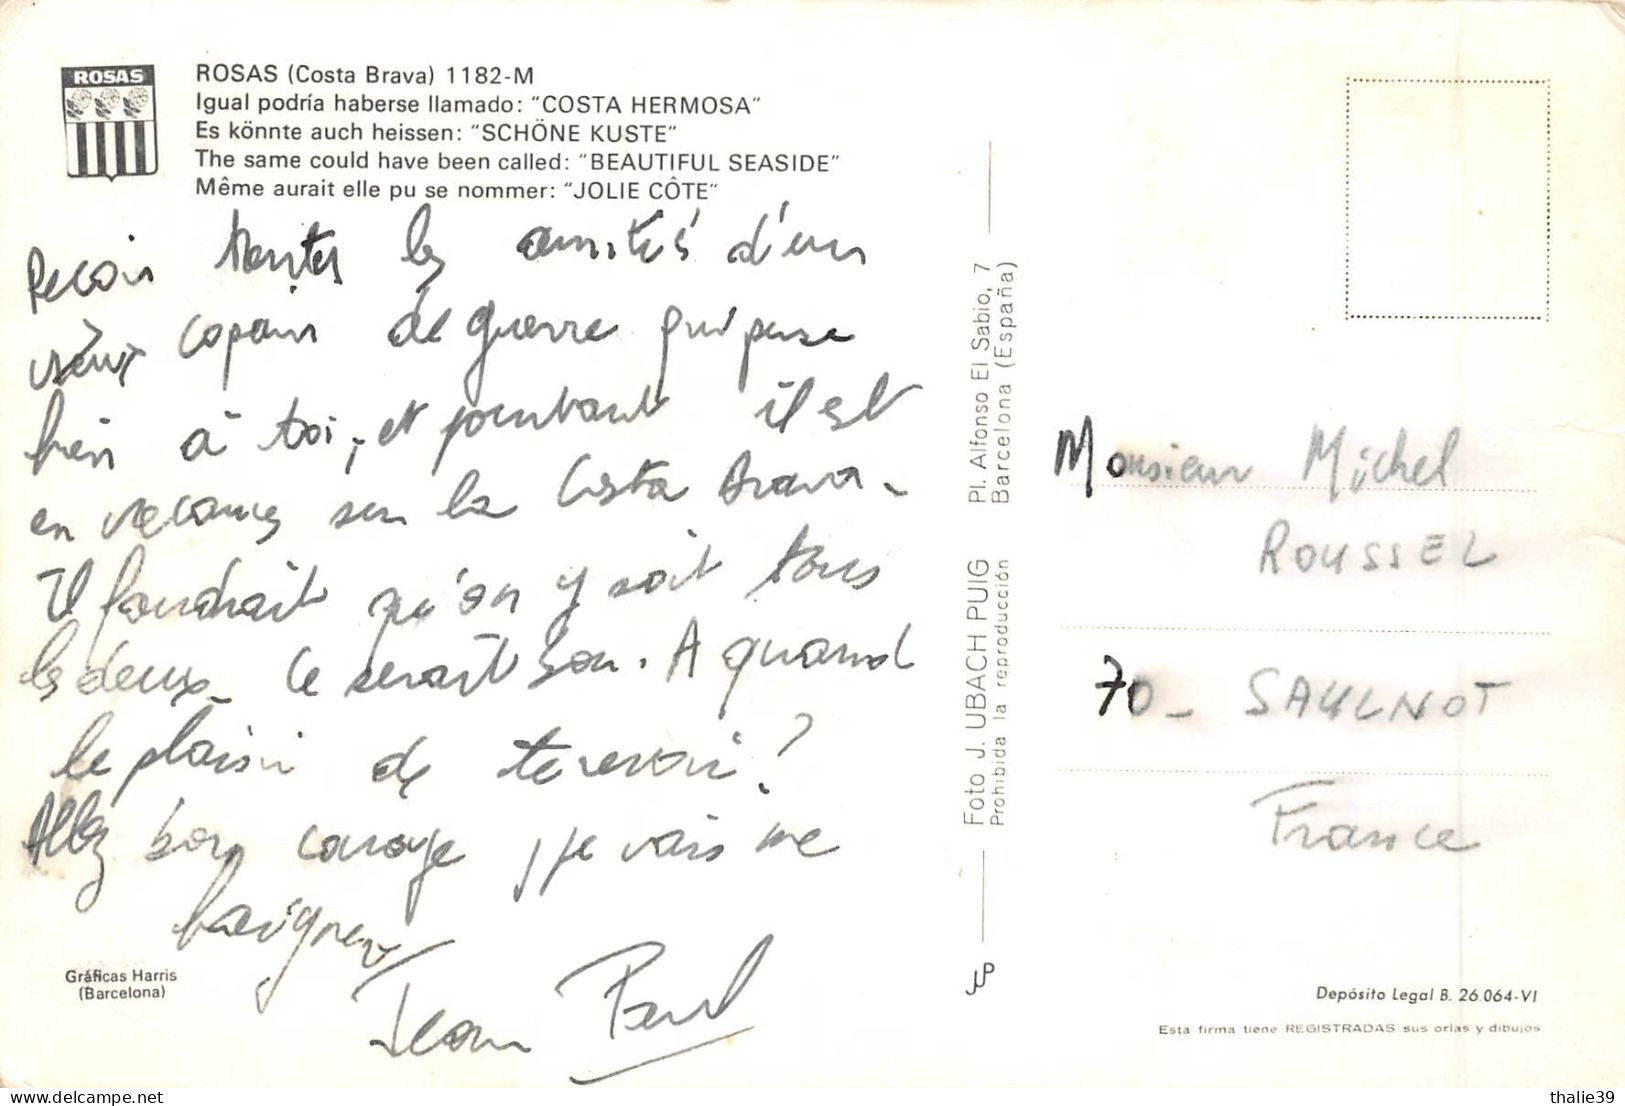 ROSAS
ROSAS (Costa Brava) 1182-M
Igual podría haberse llamado: "COSTA HERMOSA"
Es könnte auch heissen: "SCHÖNE KUSTE"
The same could have been called: "BEAUTIFUL SEASIDE"
Même aurait elle pu se nommer: "JOLIE CÔTE"
Reçois toutes les amitiés d'un
vieux copain de guerre qui pense
bien à toi, et pourtant il est
en vacances sur la Costa Brava -
Il faudrait qu'on y soit tous
les deux - Ce serait bon. A quand
le plaisir de te revoir ?
Allez bon courage, je vais me
baigner
Jean Paul
Gráficas Harris
(Barcelona)
Foto J. UBACH PUIG Pl. Alfonso El Sabio, 7
Prohibida la reproducción Barcelona (España)
JUP
Monsieur Michel
ROUSSEL
70 - SAULNOT
France
Depósito Legal B. 26.064-VI
Esta firma tiene REGISTRADAS sus orlas y dibujos
thalie39